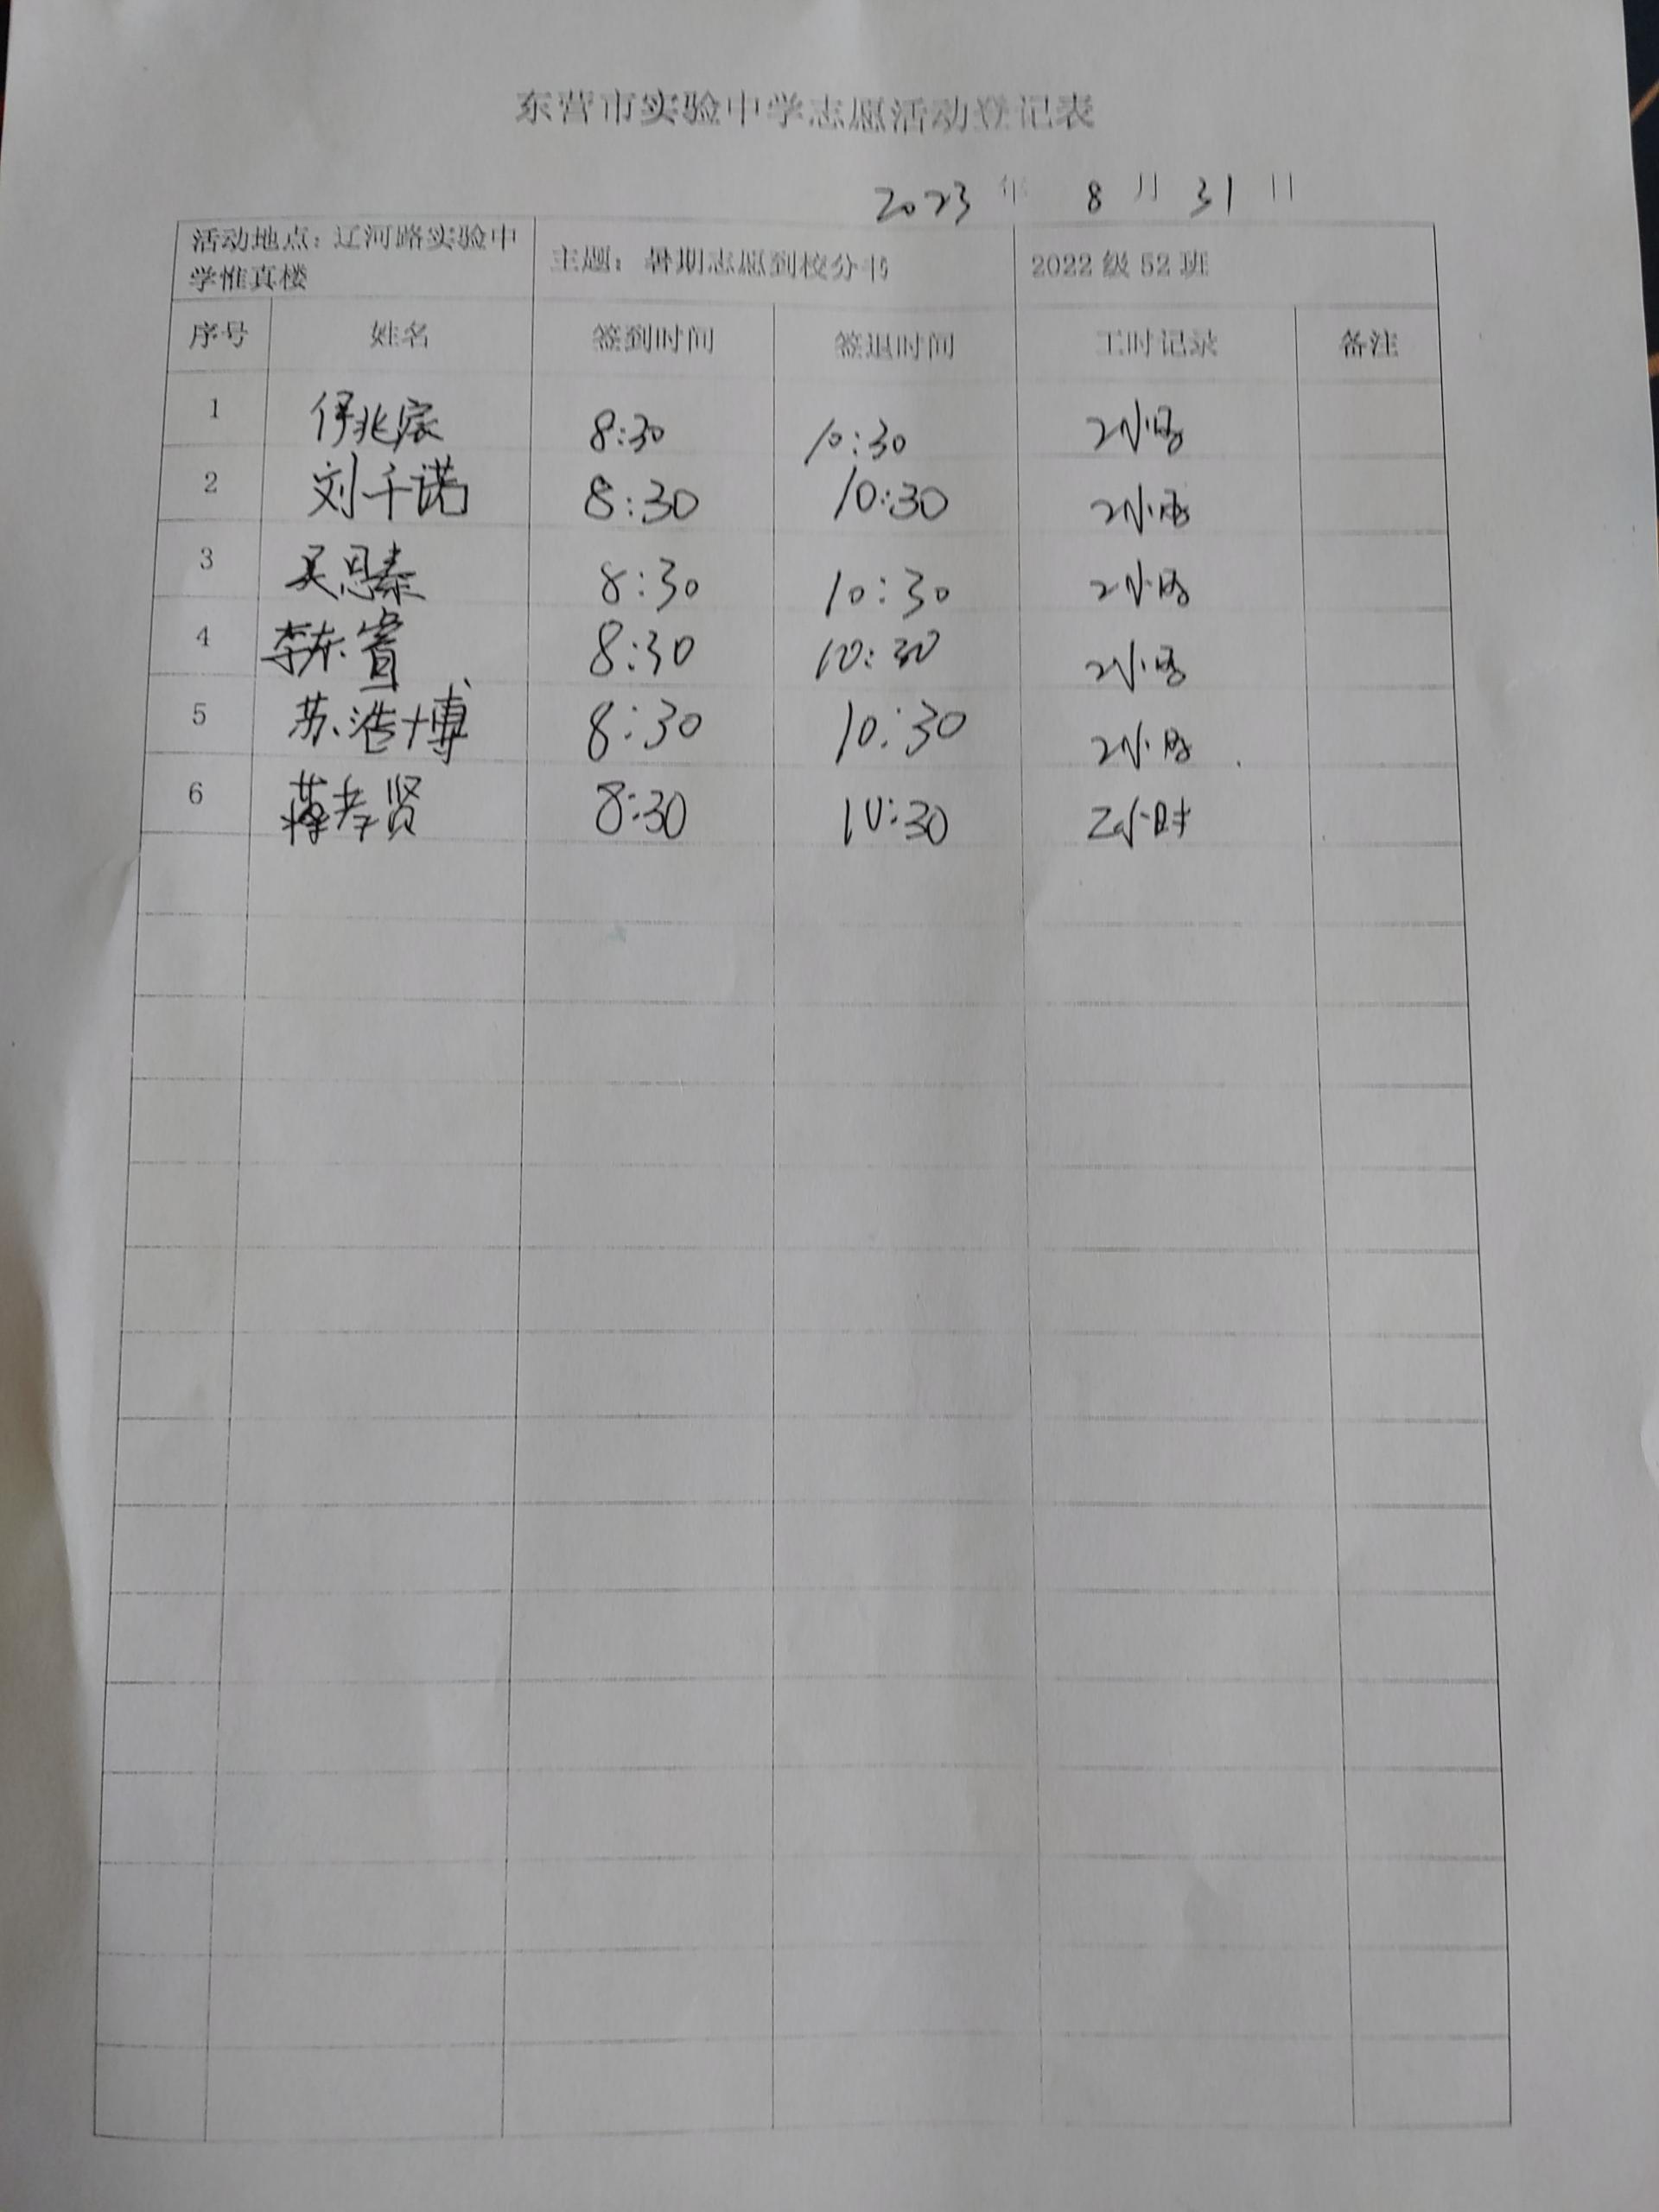 东营市实验中学志愿活动登记表
2023 年 8 月 31 日
活动地点：辽河路实验中 主题：暑期志愿到校分书 2022 级 52 班
学惟真楼
序号 姓名 签到时间 签退时间 工时记录 备注
1 8:30 10:30 2小时
2 刘千诺 8:30 10:30 2小时
3 吴思秦 8:30 10:30 2小时
4 李东睿 8:30 10:30 2小时
5 苏浩博 8:30 10:30 2小时
6 薄孝贤 8:30 10:30 2小时